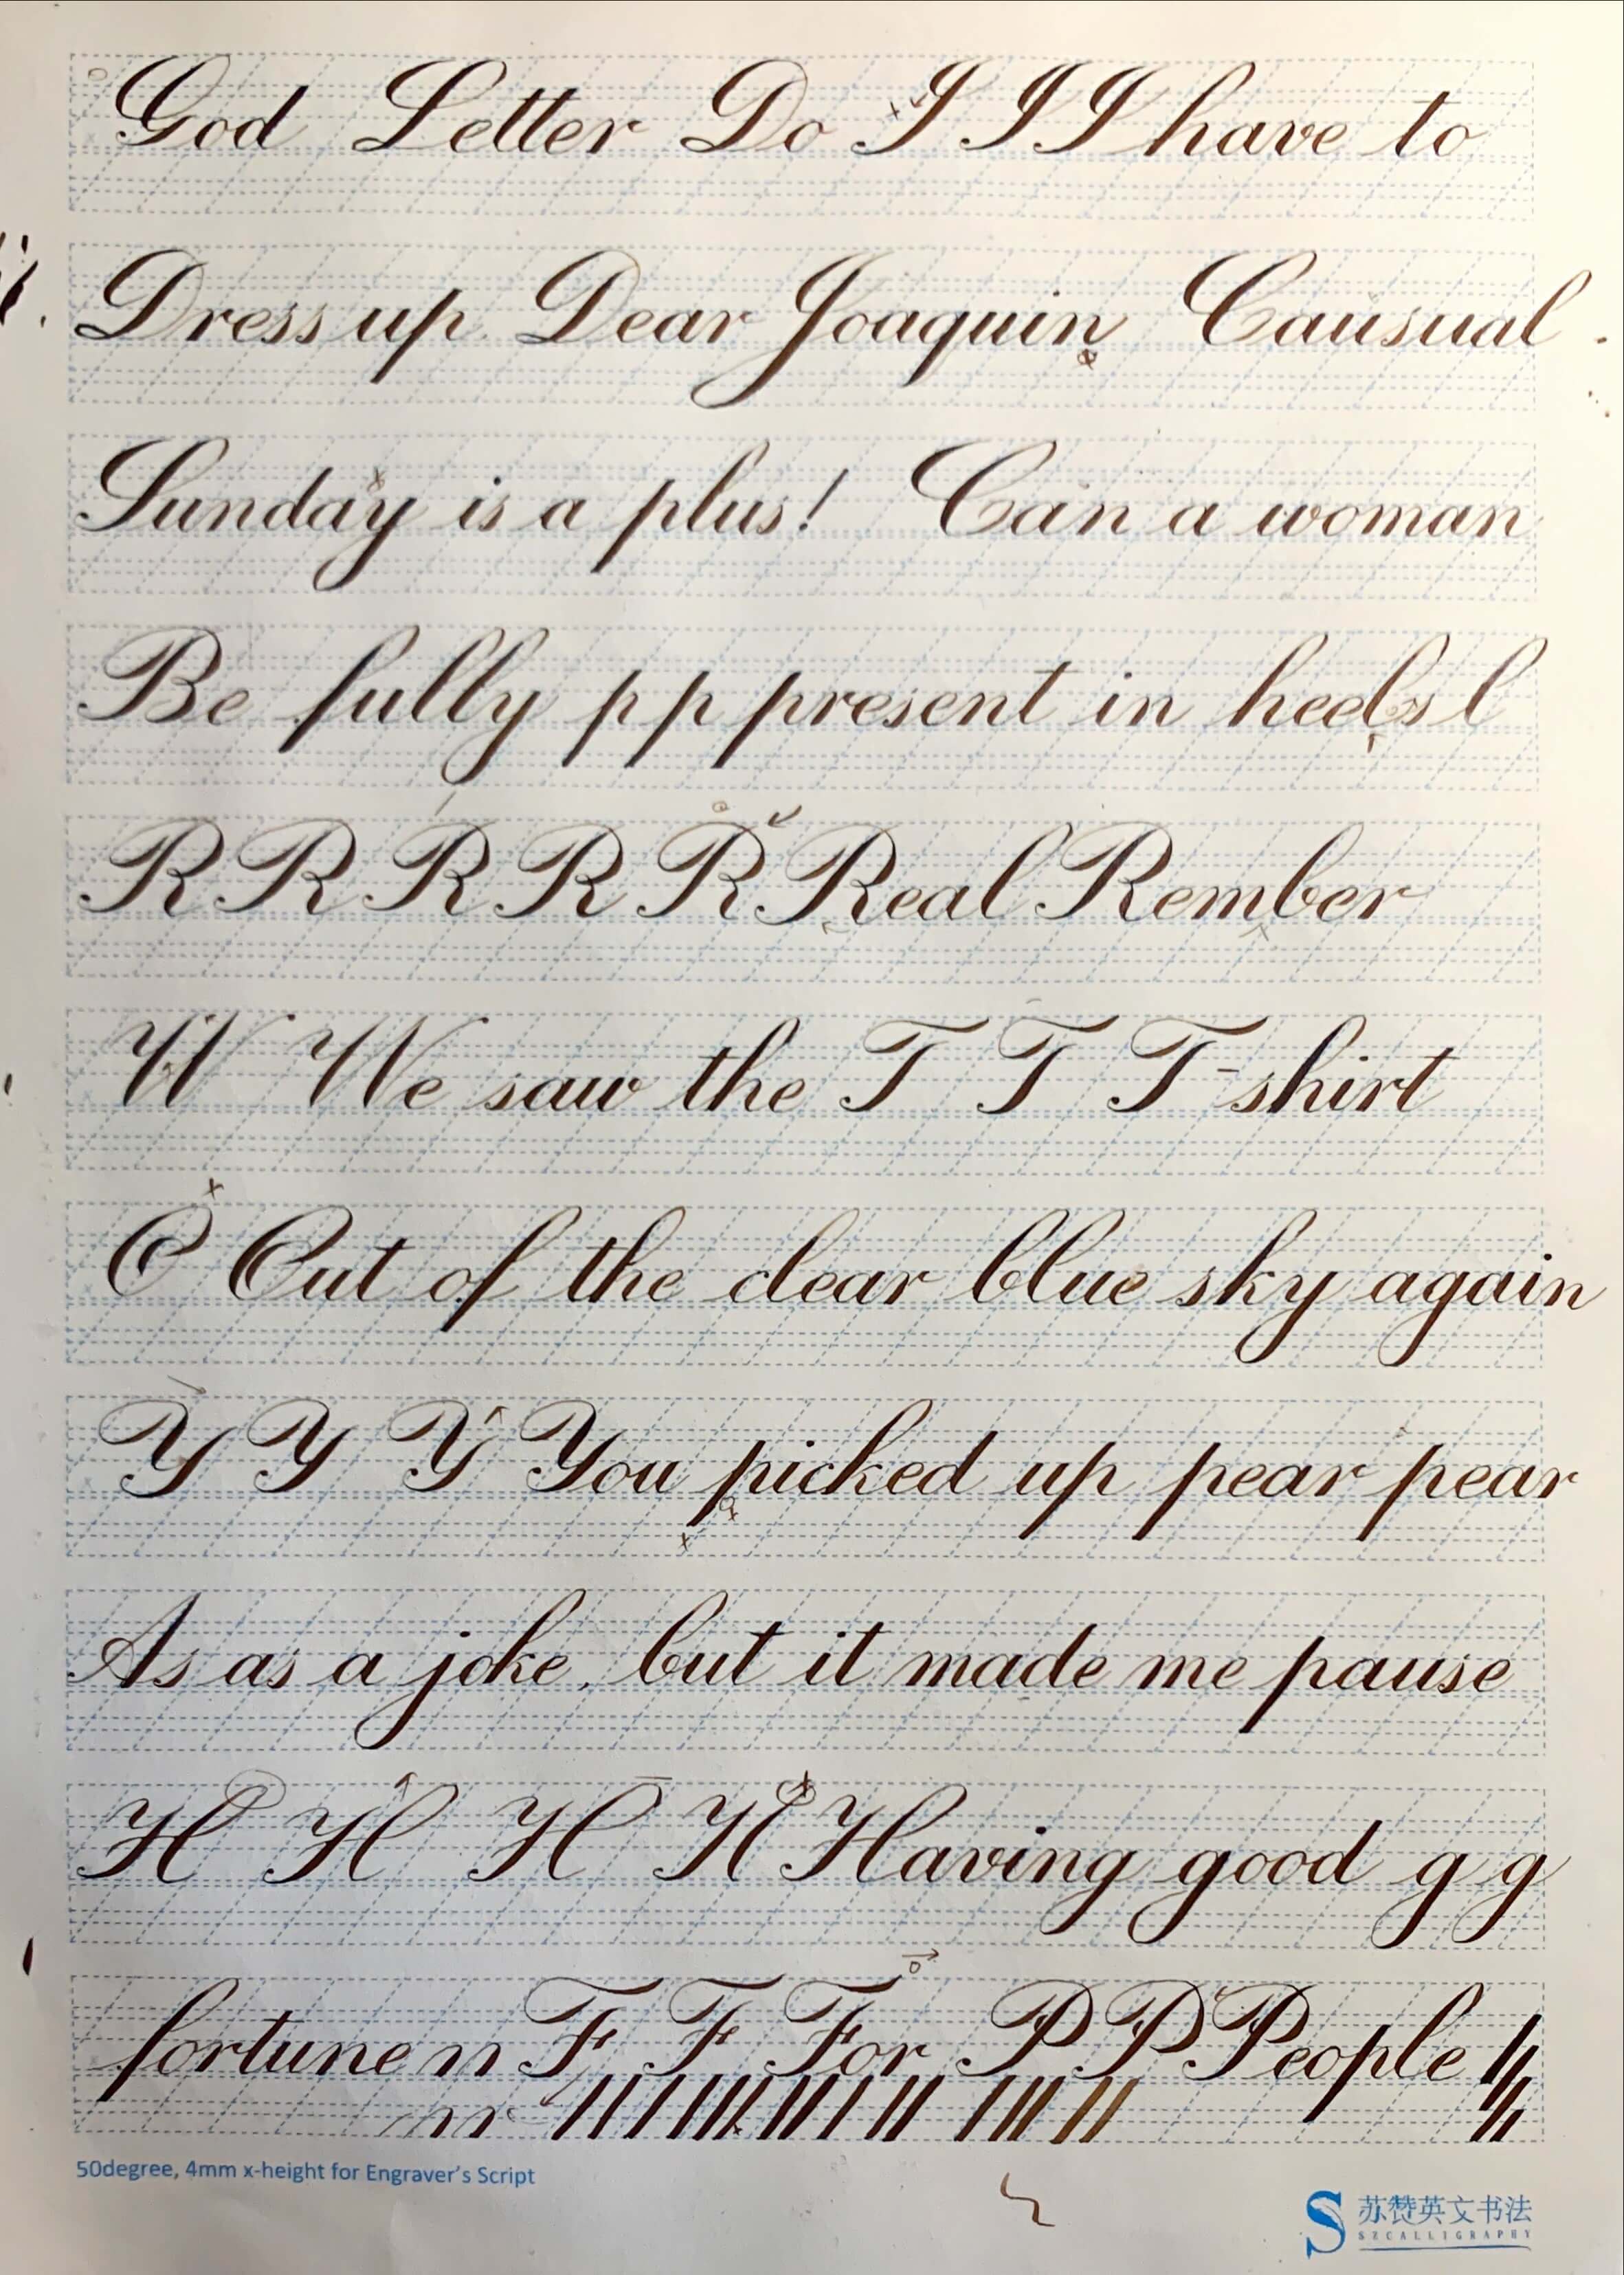 God Letter Do I I I have to
Dress up Dear Joaquin Causual
Sunday is a plus! Can a woman
Be fully p p present in heels l
R R R R R Real Rember
W We saw the T T T-shirt
O Out of the clear blue sky again
Y Y Y You picked up pear pear
As as a joke, but it made me pause
H H H H Having good g g
fortune n F F For P P People
50degree, 4mm x-height for Engraver's Script
苏赞英文书法
SZCALLIGRAPHY